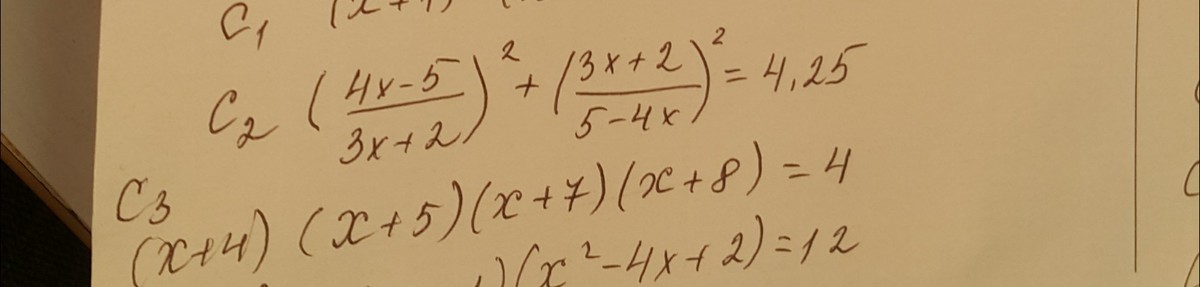 C1 (x+4)
C2 ((4x-5)/(3x+2))² + ((3x+2)/(5-4x))² = 4,25
C3
(x+4) (x+5)(x+7)(x+8) = 4
)(x²-4x+2)=12